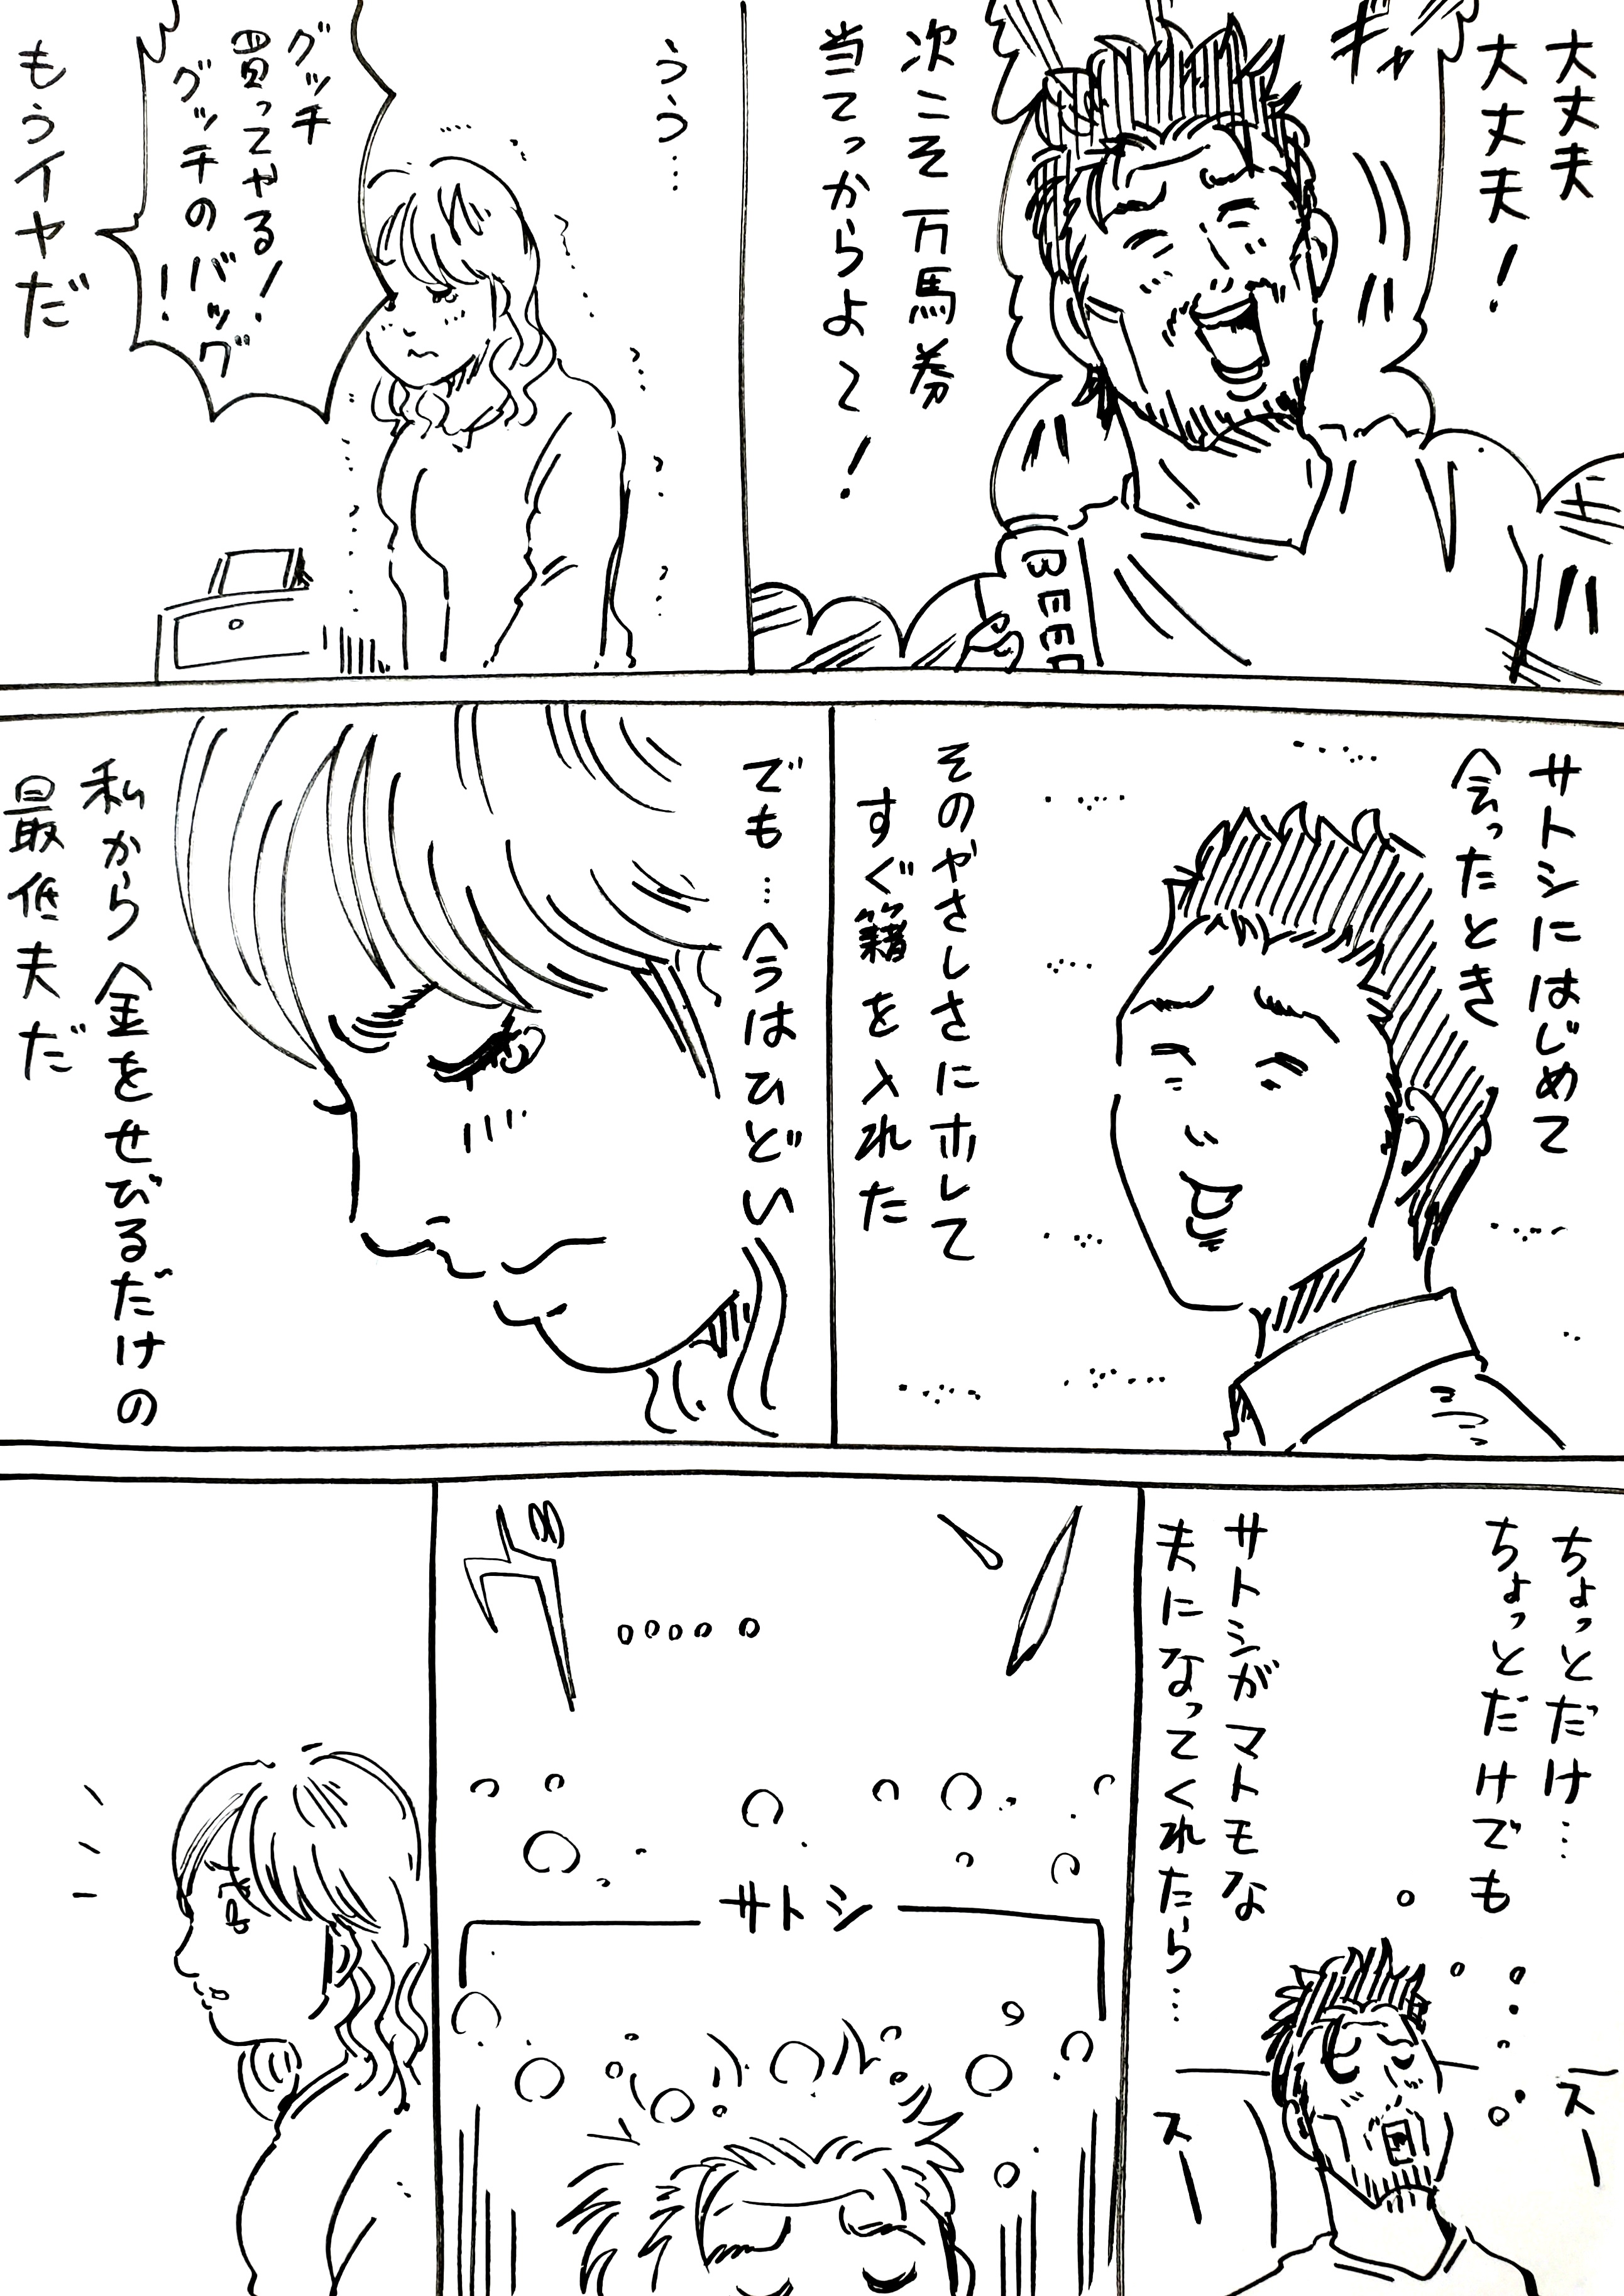 大丈夫
大丈夫！
ギャ
ハハ
次こそ万馬券
当てっからよて！
BEE
うう…
グッチ
買ってやる！
グッチのバッグ！
もうイヤだ
サトシにはじめて
会ったとき
そのやさしさにホレて
すぐ籍を入れた
でも…今はひどい
私から金をせびるだけの
最低夫だ
ちょっとだけ…
ちょっとだけでも
サトシがマトモな
夫になってくれたら…
スー
スー
サトシ